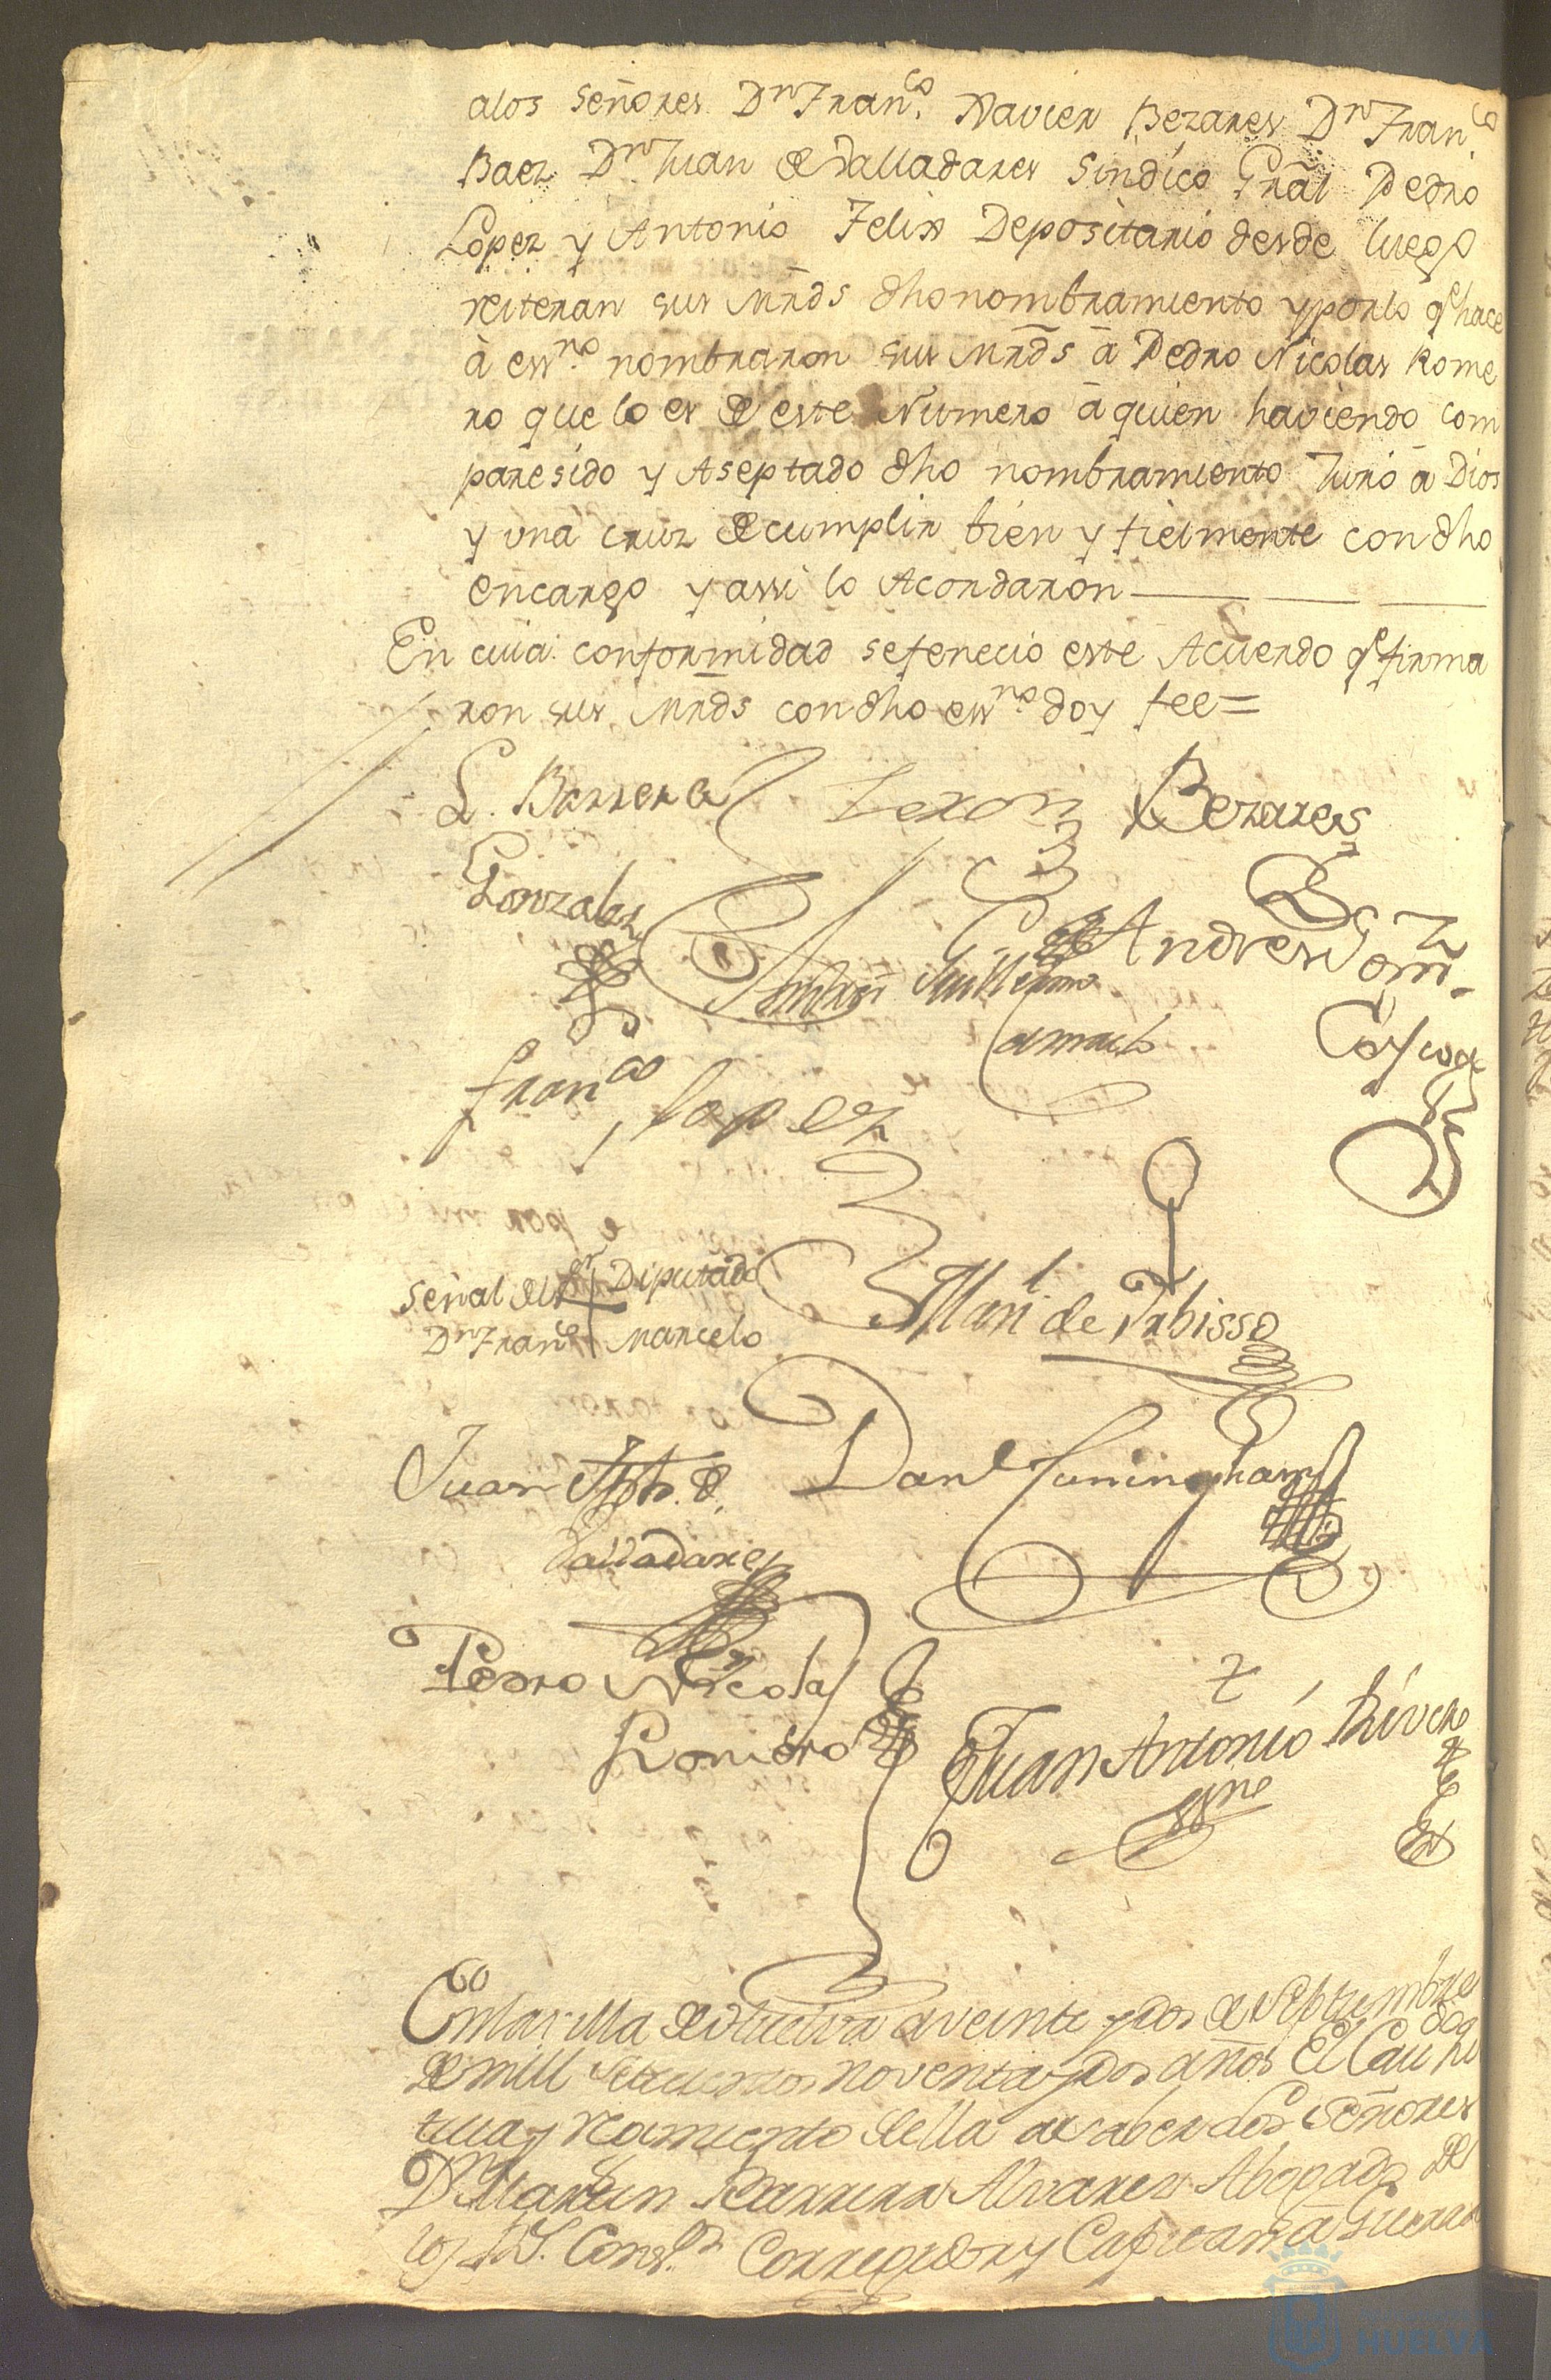 alos Señores Dn Franco. Xavier Bezares Dn Franco.
Baez Dn Juan de Valladares Sindico Gral Pedro
Lopez y Antonio Felix Depositario desde luego
reiteran sus Mrds dho nombramiento y por lo qe hace
à essno. nombraron sus Mrds à Pedro Nicolas Rome
ro que lo es de este Numero à quien haviendo com
paresido y Aseptado dho nombramiento Juró à Dios
y una cruz de cumplir bien y fielmente con dho
encargo y assi lo Acordaron
En cuia conformidad se fenecio este Acuerdo qe firma
ron sus Mrds con dho essno. doy fee=
L. Barrera Bezares
Gonzalez
Andres Gom
Camacho
Franco Lopez
Señal del Sr Diputado
Dn Franco Marcelo
Manl de Trbisso
Juan de Danl Cuningham
Valladares
Pedro Nicolas
Romero
Juan Antonio Rivera
ssno
En la villa de Huelva a veinte y dos de Septiembre
de mill setecientos noventa y dos años El Cau
y recimiento della a saber los Señores
Dn Martin Barrera Alvarez Abogado de
los Rs. Consos Corregidor y Capitan à Guerra
HUELVA